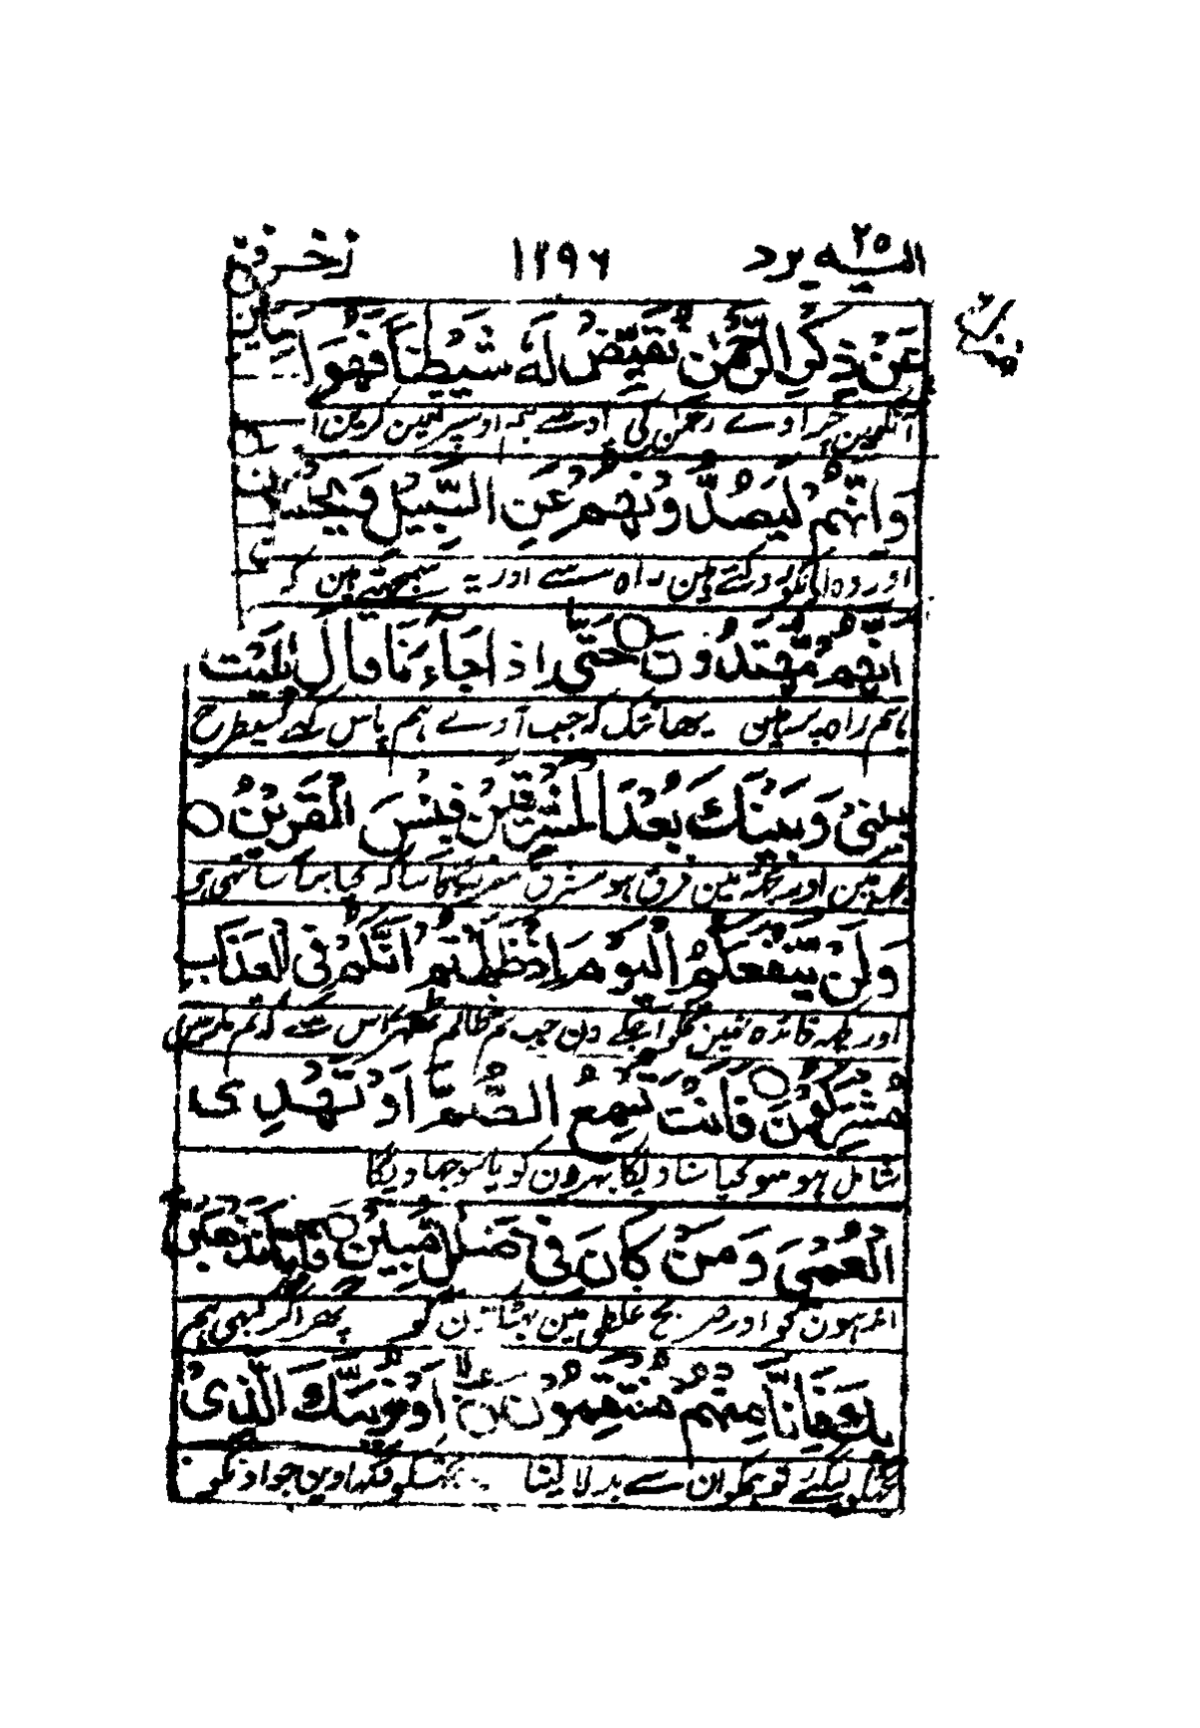 الیه یرد ٢٥ ١٢٩٦ زخرف
عَنْ ذِكْرِ الرَّحْمٰنِ نُقَيِّضْ لَهٗ شَيْطٰنًا فَهُوَ
آنکھیں چراوے رحمن کی یاد سے ہم اوسپر تعین کرین
وَاِنَّهُمْ لَيَصُدُّوْنَهُمْ عَنِ السَّبِيْلِ وَيَحْسَبُوْنَ
اور وہ انکو روکتے ہین راہ سے اور یہ سمجھتے ہین کہ
اَنَّهُمْ مُّهْتَدُوْنَ ○ حَتّٰٓى اِذَا جَآءَنَا قَالَ يٰلَيْتَ
ہم راہ پر ہین یہانتک کہ جب آوے ہم پاس کہے کسیطرح
بَيْنِيْ وَبَيْنَكَ بُعْدَ الْمَشْرِقَيْنِ فَبِئْسَ الْقَرِيْنُ ○
مجھ مین اور تجھ مین فرق ہو مشرق مغرب کا سا کہ کیا برا ساتھی ہی
وَلَنْ يَّنْفَعَكُمُ الْيَوْمَ اِذْ ظَّلَمْتُمْ اَنَّكُمْ فِى الْعَذَابِ
اور کچھ فائدہ نہین تمکو آجکے دن جب تم ظالم ٹھہرے اس سے کہ تم مار مین
مُشْتَرِكُوْنَ ○ اَفَاَنْتَ تُسْمِعُ الصُّمَّ اَوْ تَهْدِى
شامل ہو سو کیا سنا ویگا بہرون کو یا سوجھا ویگا
الْعُمْيَ وَمَنْ كَانَ فِيْ ضَلٰلٍ مُّبِيْنٍ ○ فَاِمَّا نَذْهَبَنَّ
اندہون کو اور صریح غلطی مین بھٹکتون کو پھر اگر کبھی ہم
بِكَ فَاِنَّا مِنْهُمْ مُّنْتَقِمُوْنَ ○ اَوْ نُرِيَنَّكَ الَّذِيْ
تجھکو لیگئے تو ہمکو ان سے بدلا لینا یا تجھکو دکھاوین جو اونکو